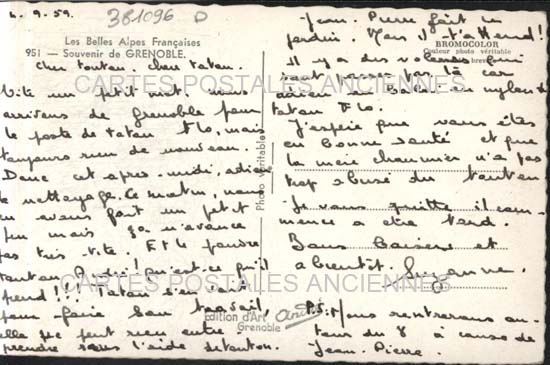 6.9.59.
381096 D
Les Belles Alpes Françaises
951 - Souvenir de GRENOBLE.
Cher tonton, chère tatan.
Vite un petit mot. nous
arrivons de Grenoble pour
le poste de tatan Flo, mais
toujours rien de nouveau.
Donc cet après-midi,
le nettoyage. Ce matin, nous
en avons fait un petit
peu mais ça n'avance
pas très vite. Et la poudre
tonton, qu'est-ce qu'il
prend!!! Tatan s'en sert
pour faire son travail,
elle ne peut rien entre
prendre sans l'aide de tonton.
Jean-Pierre fait le
jardin. Mais il t'attend!
Il y a des voleurs qui
sont passés par là car
adieu bas en nylon de
tatan Flo.
J'espère que vous êtes
en bonne santé et que
la mère chaumier n'a pas
trop abusé du tonton
Je vous quitte il com-
mence à être tard.
Bons baisers et
à bientôt. Suzanne.
P.S: Nous rentrerons au-
tour du 8 à cause de
Jean-Pierre.
BROMOCOLOR
Couleur photo véritable
brev
Photo Véritable
Edition d'Art
Grenoble
CARTES POSTALES ANCIENNES
CARTES POSTALES ANCIENNES